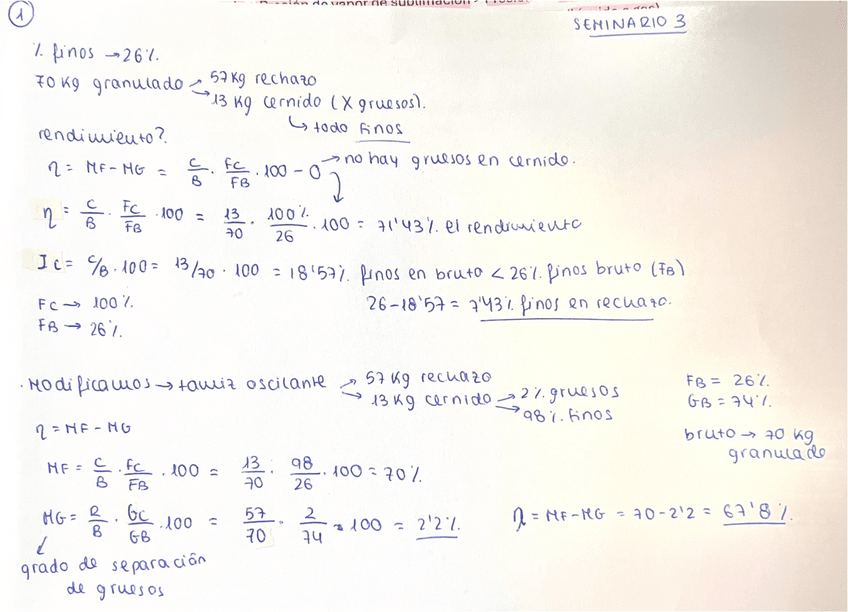 ① SEMINARIO 3
% finos → 26%.
70 Kg granulado → 57 Kg rechazo
→ 13 Kg cernido (X gruesos).
↳ todo finos
rendimiento?
η = MF - MG = C/B · FC/FB · 100 - 0 → no hay gruesos en cernido.
η = C/B · FC/FB · 100 = 13/70 · 100%/26 · 100 = 71'43% el rendimiento
Ic = C/B · 100 = 13/70 · 100 = 18'57% finos en bruto < 26% finos bruto (FB)
FC → 100%.
26 - 18'57 = 7'43% finos en rechazo.
FB → 26%.
· Modificamos → tamiz oscilante → 57 Kg rechazo
→ 13 Kg cernido → 2% gruesos
→ 98% finos
FB = 26%.
GB = 74%.
bruto → 70 Kg
granulado
η = MF - MG
MF = C/B · FC/FB · 100 = 13/70 · 98/26 · 100 = 70%.
MG = R/B · GC/GB · 100 = 57/70 · 2/74 · 100 = 2'2%.
η = MF - MG = 70 - 2'2 = 67'8%.
↓
grado de separación
de gruesos